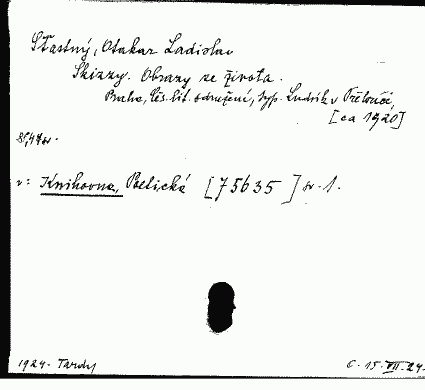 Šťastný, Otakar Ladislav
Skizzy. Obrazy ze života.
Praha, Čes. lit. sdružení, typ. Ludvík v Přelouči,
[ca 1920]
8°, 47 s.
v: Knihovna, Poetická [75635] sv. 1.
1924. Tardy
C. 15. VII. 24.